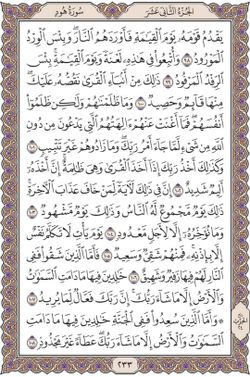 الجزء الثاني عشر
سورة هود
يَقْدُمُ قَوْمَهُ يَوْمَ الْقِيَٰمَةِ فَأَوْرَدَهُمُ النَّارَ ۖ وَبِئْسَ الْوِرْدُ
الْمَوْرُودُ ﴿٩٨﴾ وَأُتْبِعُوا فِي هَٰذِهِ لَعْنَةً وَيَوْمَ الْقِيَٰمَةِ ۚ بِئْسَ
الرِّفْدُ الْمَرْفُودُ ﴿٩٩﴾ ذَٰلِكَ مِنْ أَنْبَاءِ الْقُرَىٰ نَقُصُّهُ عَلَيْكَ ۖ
مِنْهَا قَائِمٌ وَحَصِيدٌ ﴿١٠٠﴾ وَمَا ظَلَمْنَٰهُمْ وَلَٰكِنْ ظَلَمُوا
أَنْفُسَهُمْ ۖ فَمَا أَغْنَتْ عَنْهُمْ ءَالِهَتُهُمُ الَّتِي يَدْعُونَ مِنْ دُونِ
اللَّهِ مِنْ شَيْءٍ لَمَّا جَاءَ أَمْرُ رَبِّكَ ۖ وَمَا زَادُوهُمْ غَيْرَ تَتْبِيبٍ ﴿١٠١﴾
وَكَذَٰلِكَ أَخْذُ رَبِّكَ إِذَا أَخَذَ الْقُرَىٰ وَهِيَ ظَٰلِمَةٌ ۚ إِنَّ أَخْذَهُ
أَلِيمٌ شَدِيدٌ ﴿١٠٢﴾ إِنَّ فِي ذَٰلِكَ لَءَايَةً لِمَنْ خَافَ عَذَابَ الْءَاخِرَةِ ۚ
ذَٰلِكَ يَوْمٌ مَجْمُوعٌ لَهُ النَّاسُ وَذَٰلِكَ يَوْمٌ مَشْهُودٌ ﴿١٠٣﴾
وَمَا نُؤَخِّرُهُ إِلَّا لِأَجَلٍ مَعْدُودٍ ﴿١٠٤﴾ يَوْمَ يَأْتِ لَا تَكَلَّمُ نَفْسٌ
إِلَّا بِإِذْنِهِ ۚ فَمِنْهُمْ شَقِيٌّ وَسَعِيدٌ ﴿١٠٥﴾ فَأَمَّا الَّذِينَ شَقُوا فَفِي
النَّارِ لَهُمْ فِيهَا زَفِيرٌ وَشَهِيقٌ ﴿١٠٦﴾ خَٰلِدِينَ فِيهَا مَا دَامَتِ السَّمَٰوَٰتُ
وَالْأَرْضُ إِلَّا مَا شَاءَ رَبُّكَ ۚ إِنَّ رَبَّكَ فَعَّالٌ لِمَا يُرِيدُ ﴿١٠٧﴾
۞ وَأَمَّا الَّذِينَ سُعِدُوا فَفِي الْجَنَّةِ خَٰلِدِينَ فِيهَا مَا دَامَتِ
السَّمَٰوَٰتُ وَالْأَرْضُ إِلَّا مَا شَاءَ رَبُّكَ ۖ عَطَاءً غَيْرَ مَجْذُوذٍ ﴿١٠٨﴾
٢٣٣